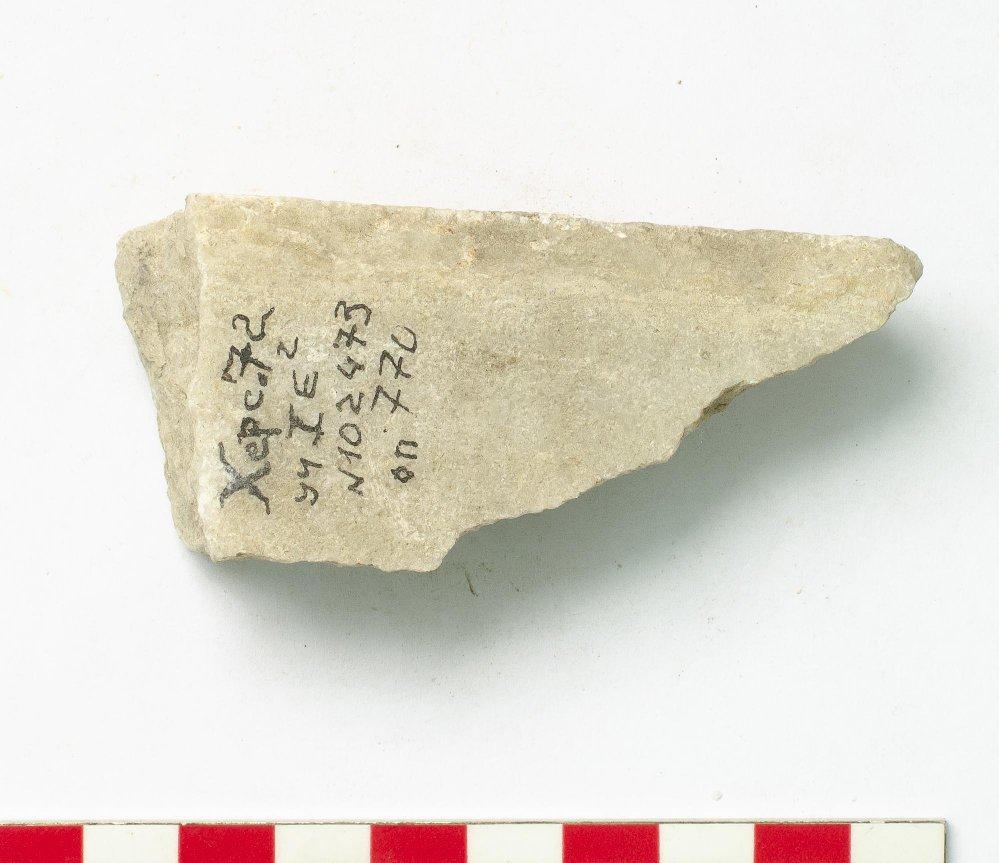 Херс.72
уч I Е2
N102473
оп 770